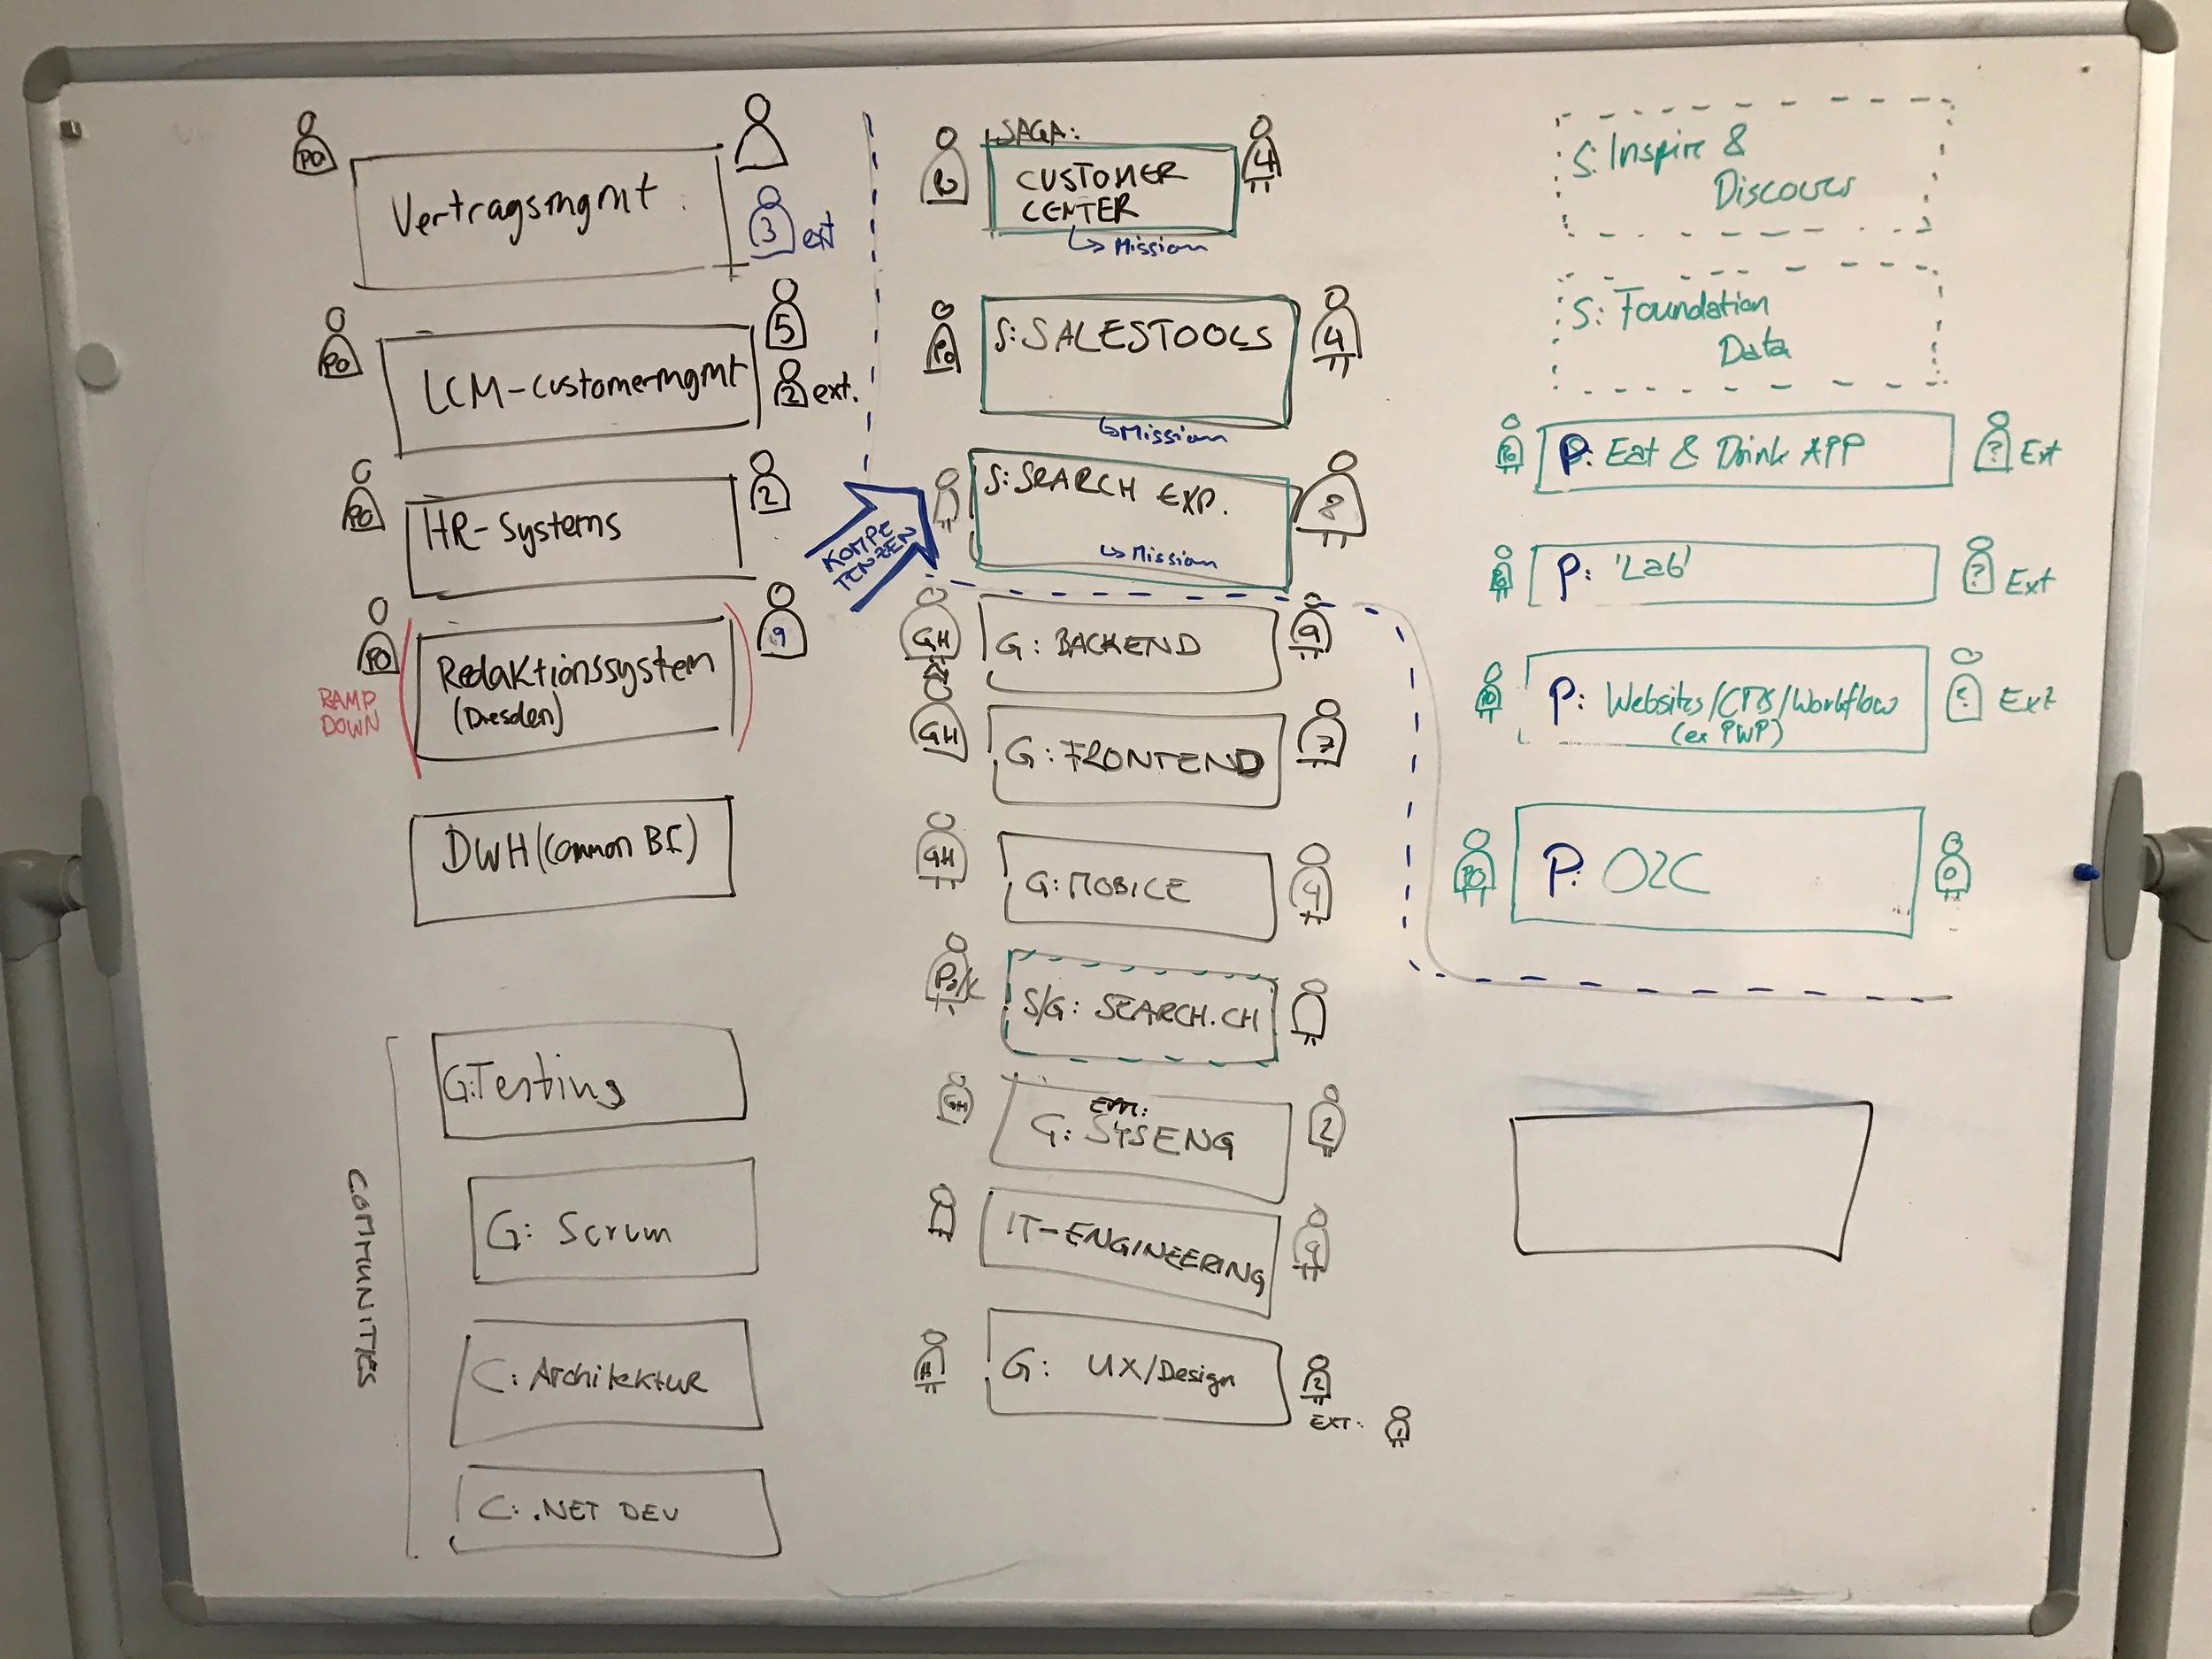 PO
Vertragsmgmt
3 ext
PO
LCM-Customermgmt
5
2 ext.
PO
HR-Systems
2
PO
Redaktionssystem
(Dresden)
9
RAMP
DOWN
DWH (Common BI)
COMMUNITIES
G: Testing
G: Scrum
C: Architektur
C: .NET DEV
KOMPE
TENZEN
SAGA:
PO
CUSTOMER
CENTER
4
↳ Mission
PO
S: SALESTOOLS
4
↳ Mission
S: SEARCH EXP.
8
↳ Mission
GH
G: BACKEND
9
GH
G: FRONTEND
7
GH
G: MOBILE
4
S/G: SEARCH.CH
GH
G: SYSENG
2
IT-ENGINEERING
9
G: UX/Design
2
EXT:
S: Inspire &
Discover
S: Foundation
Data
PO
P: Eat & Drink APP
? Ext
P: 'Lab'
? Ext
PO
P: Websites/CMS/Workflow
(ex PWP)
? Ext
PO
P: O2C
0